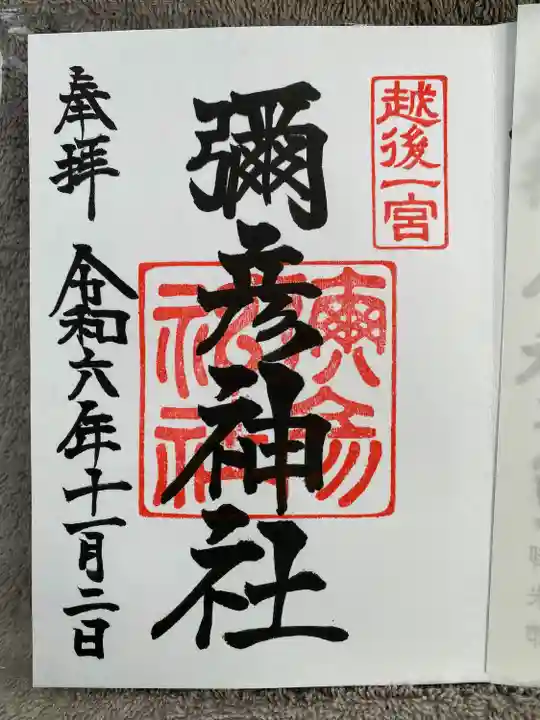 越後一宮
彌彦神社
奉拝 令和六年十一月二日